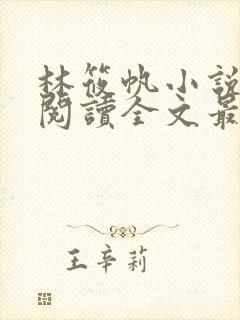 林筱帆小說
閱讀全文最
王辛莉